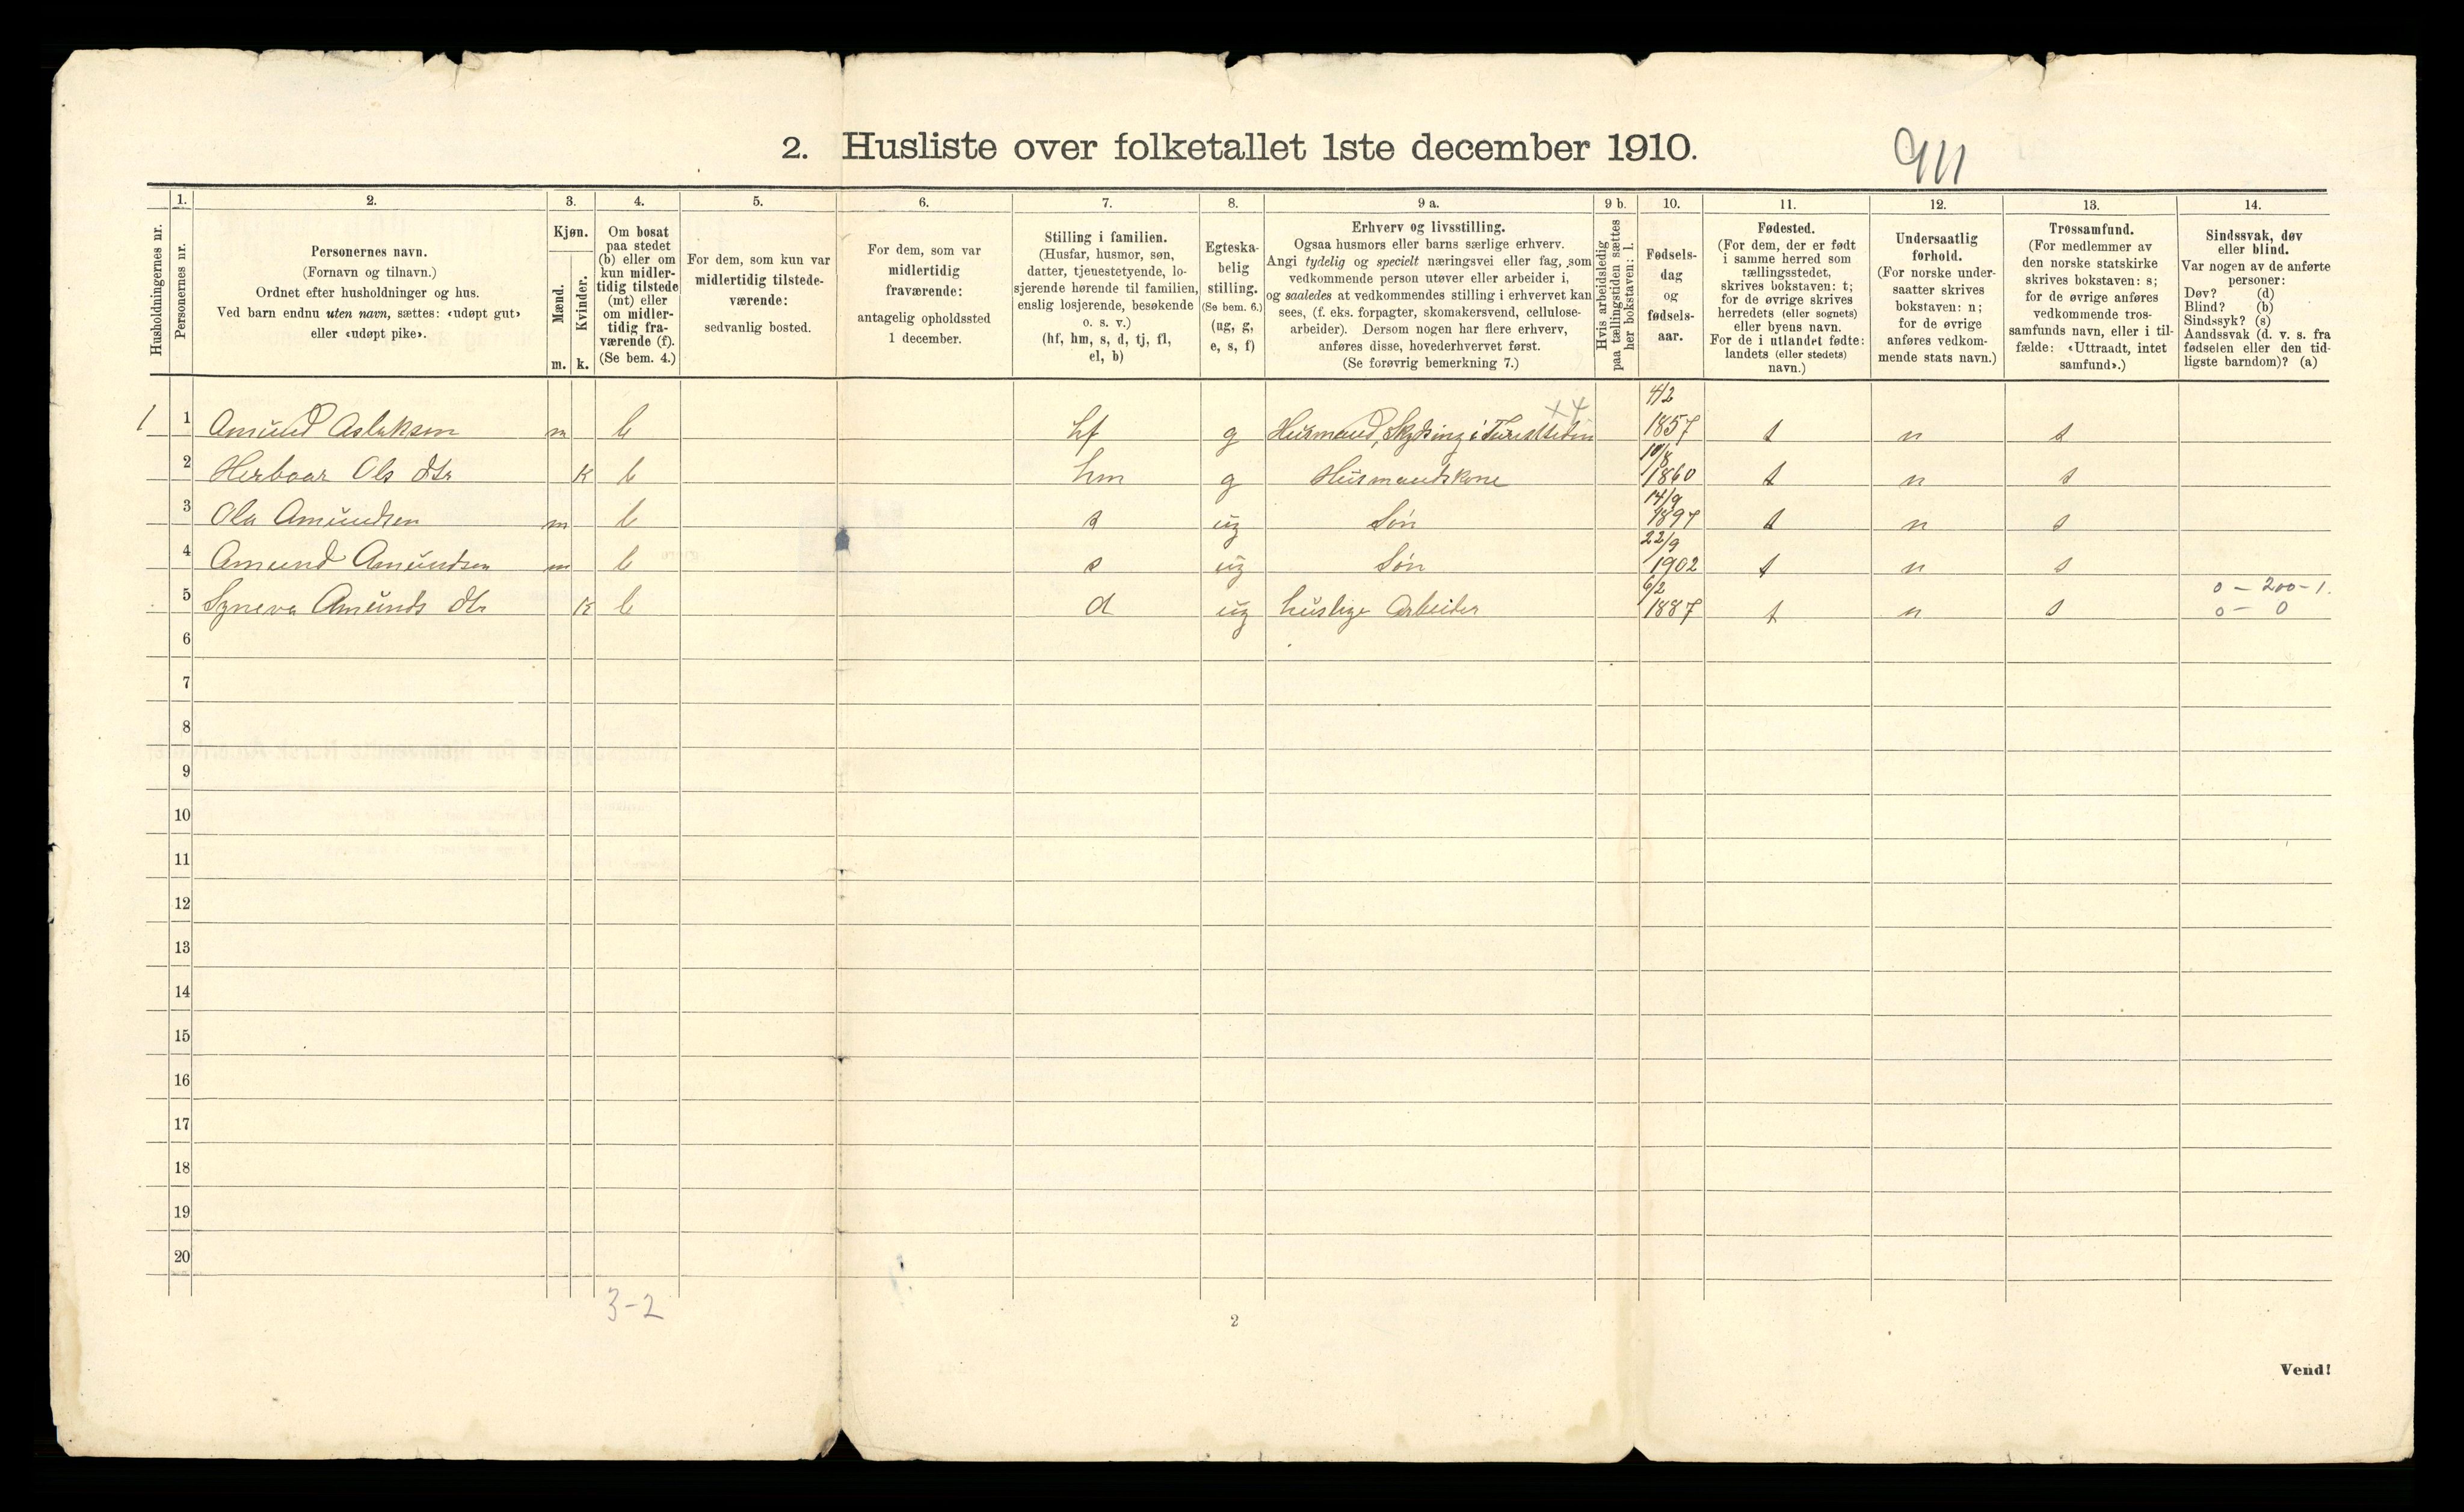 2. Husliste over folketallet 1ste december 1910.
Husholdningernes nr.
1.
Personernes nr.
2.
Personernes navn.
(Fornavn og tilnavn.)
Ordnet efter husholdninger og hus.
Ved barn endnu uten navn, sættes: «udøpt gut»
eller «udøpt pike».
3.
Kjøn.
Mænd.
Kvinder.
m. k.
4.
Om bosat
paa stedet
(b) eller om
kun midler-
tidig tilstede
(mt) eller
om midler-
tidig fra-
værende (f).
(Se bem. 4.)
5.
For dem, som kun var
midlertidig tilstede-
værende:
sedvanlig bosted.
6.
For dem, som var
midlertidig
fraværende:
antagelig opholdssted
1 december.
7.
Stilling i familien.
(Husfar, husmor, søn,
datter, tjenestetyende, lo-
sjerende hørende til familien,
enslig losjerende, besøkende
o. s. v.)
(hf, hm, s, d, tj, fl,
el, b)
8.
Egteska-
belig
stilling.
(Se bem. 6.)
(ug, g,
e, s, f)
9 a.
Erhverv og livsstilling.
Ogsaa husmors eller barns særlige erhverv.
Angi tydelig og specielt næringsvei eller fag, som
vedkommende person utøver eller arbeider i,
og saaledes at vedkommendes stilling i erhvervet kan
sees, (f. eks. forpagter, skomakersvend, cellulose-
arbeider). Dersom nogen har flere erhverv,
anføres disse, hovederhvervet først.
(Se forøvrig bemerkning 7.)
9 b.
Hvis arbeidsledig
paa tællingstiden sættes
her bokstaven: l.
10.
Fødsels-
dag
og
fødsels-
aar.
11.
Fødested.
(For dem, der er født
i samme herred som
tællingsstedet,
skrives bokstaven: t;
for de øvrige skrives
herredets (eller sognets)
eller byens navn.
For de i utlandet fødte:
landets (eller stedets)
navn.)
12.
Undersaatlig
forhold.
(For norske under-
saatter skrives
bokstaven: n;
for de øvrige
anføres vedkom-
mende stats navn.)
13.
Trossamfund.
(For medlemmer av
den norske statskirke
skrives bokstaven: s;
for de øvrige anføres
vedkommende tros-
samfunds navn, eller i til-
fælde: «Uttraadt, intet
samfund».)
14.
Sindssvak, døv
eller blind.
Var nogen av de anførte
personer:
Døv? (d)
Blind? (b)
Sindssyk? (s)
Aandssvak (d. v. s. fra
fødselen eller den tid-
ligste barndom)? (a)
1 1 Amund Aslaksen m b hf g Husmand, Skydsing i Turisttiden x4 4/2 1857 t n s
2 Herboar Ols dtr k b hm g Husmandskone 10/8 1860 t n s
3 Ola Amundsen m b s ug Søn 14/9 1897 t n s
4 Amund Amundsen m b s ug Søn 22/9 1902 t n s
5 Syneva Amunds dtr k b d ug huslige Arbeider 6/2 1887 t n s 0 - 200 - 1.
0 - 0
6
7
8
9
10
11
12
13
14
15
16
17
18
19
20
3-2
2
Vend!